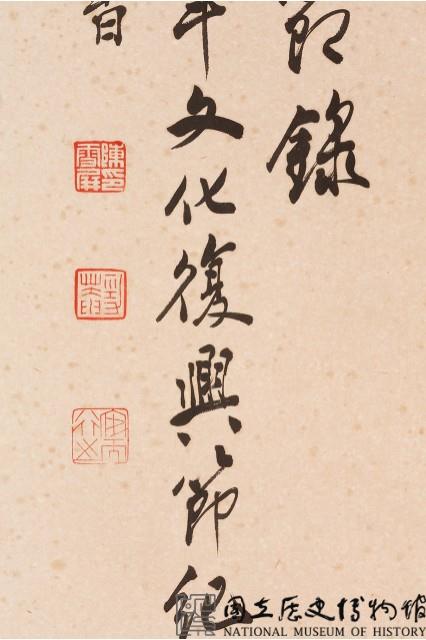 錄
年文化復興節
陳印雪屏
國立歷史博物館
NATIONAL MUSEUM OF HISTORY